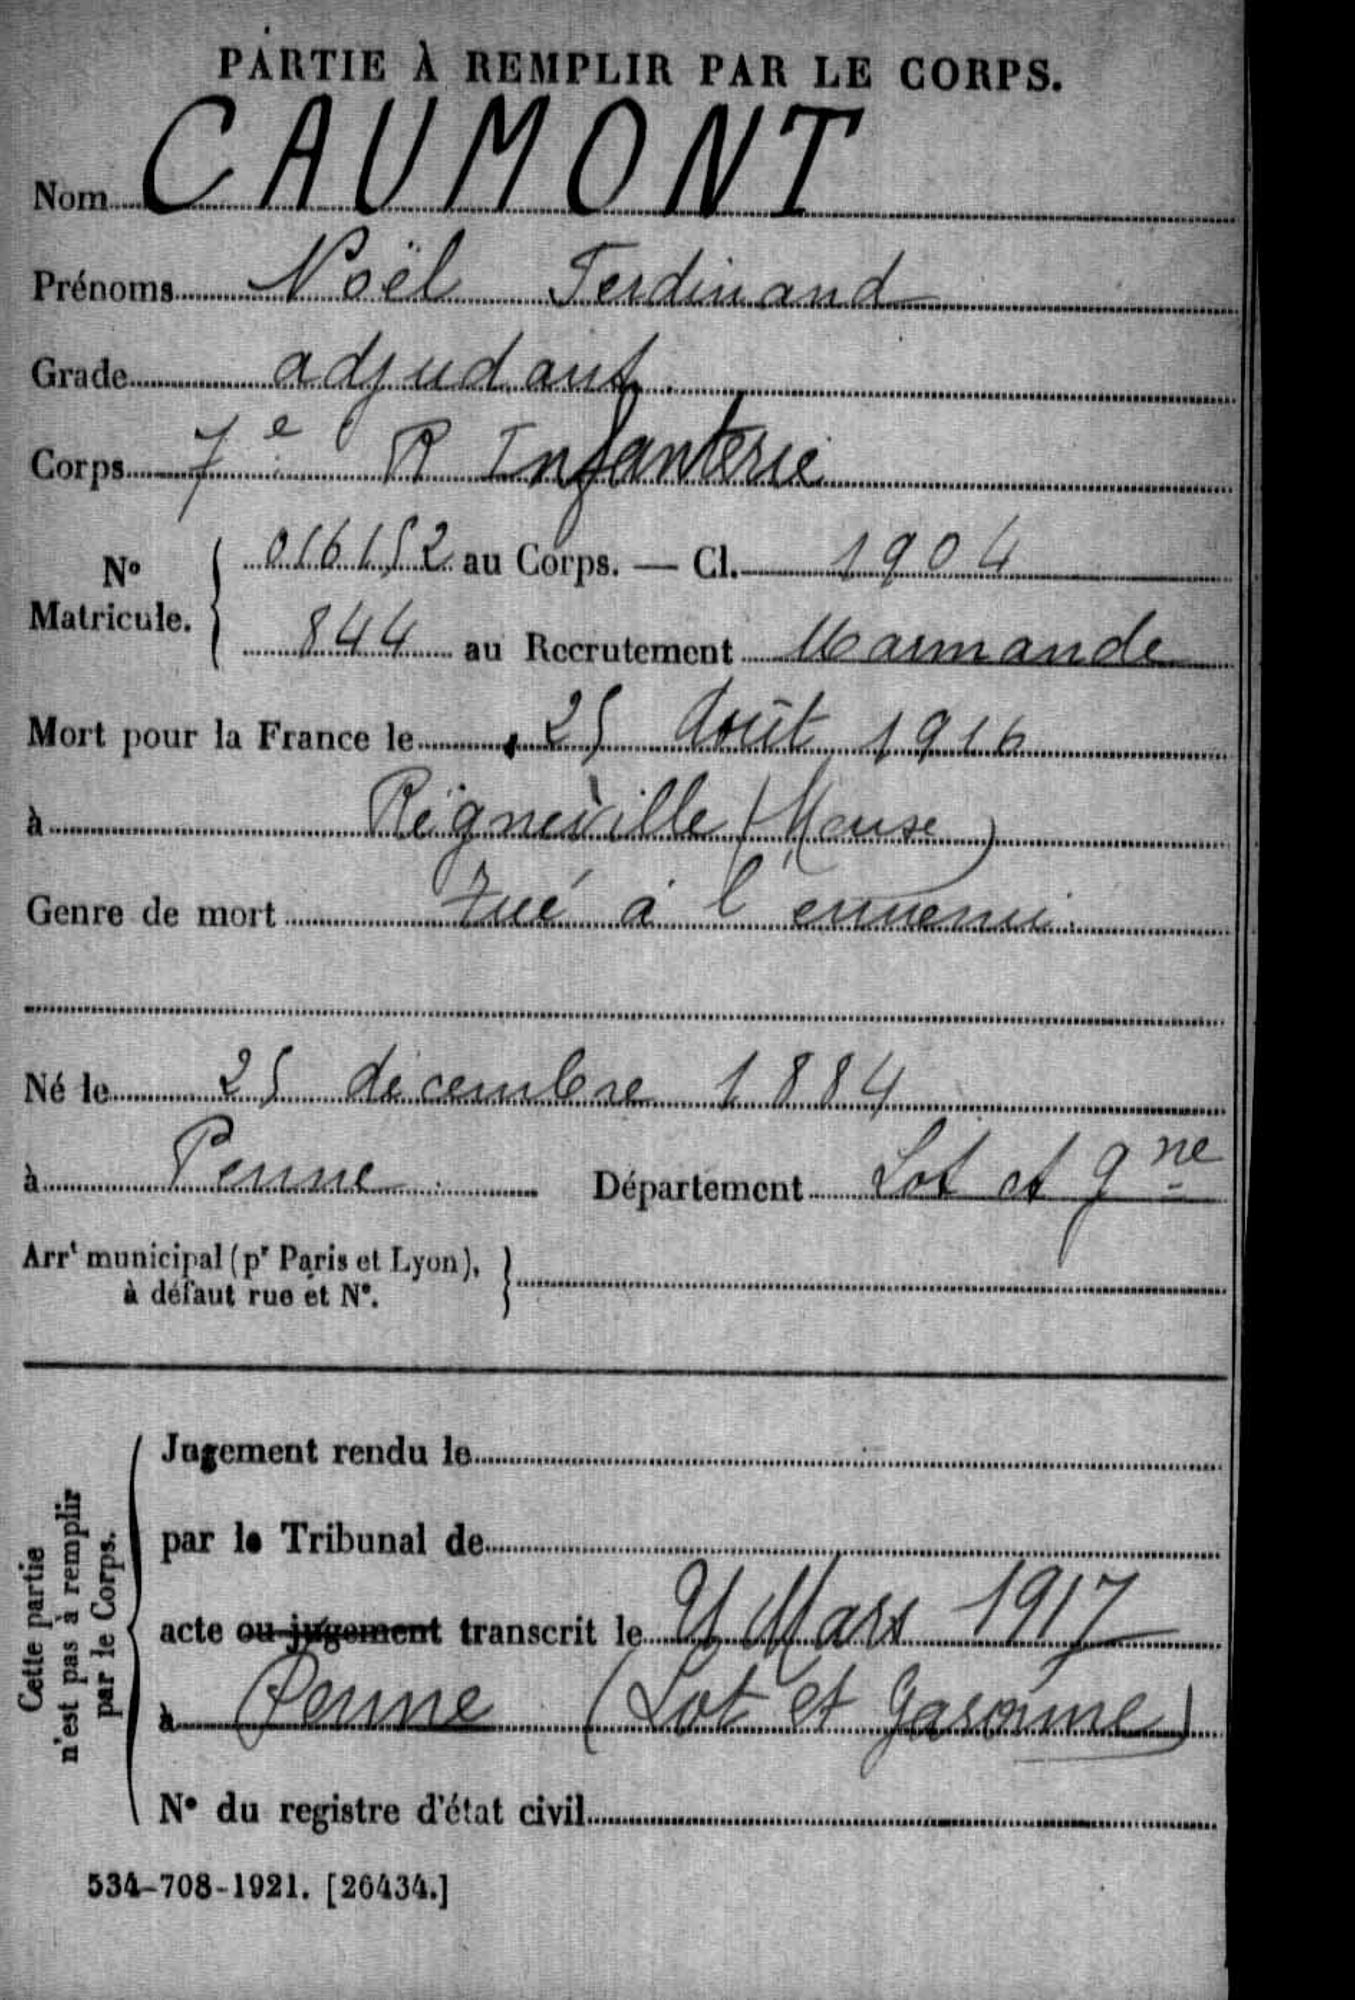 PARTIE À REMPLIR PAR LE CORPS.
Nom CAUMONT
Prénoms Noël Ferdinand
Grade adjudant
Corps 7e R Infanterie
N° Matricule. { 016152 au Corps. — Cl. 1904
844 au Recrutement Marmande
Mort pour la France le 25 Août 1916
à Régnéville (Meuse)
Genre de mort Tué à l'ennemi
Né le 25 décembre 1884
à Penne Département Lot et Gne
Arrt municipal (pr Paris et Lyon), à défaut rue et N°. }
Cette partie n'est pas à remplir par le Corps.
Jugement rendu le
par le Tribunal de
acte ou jugement transcrit le Mars 1917
à Penne (Lot et Garonne)
N° du registre d'état civil
534-708-1921. [26434.]